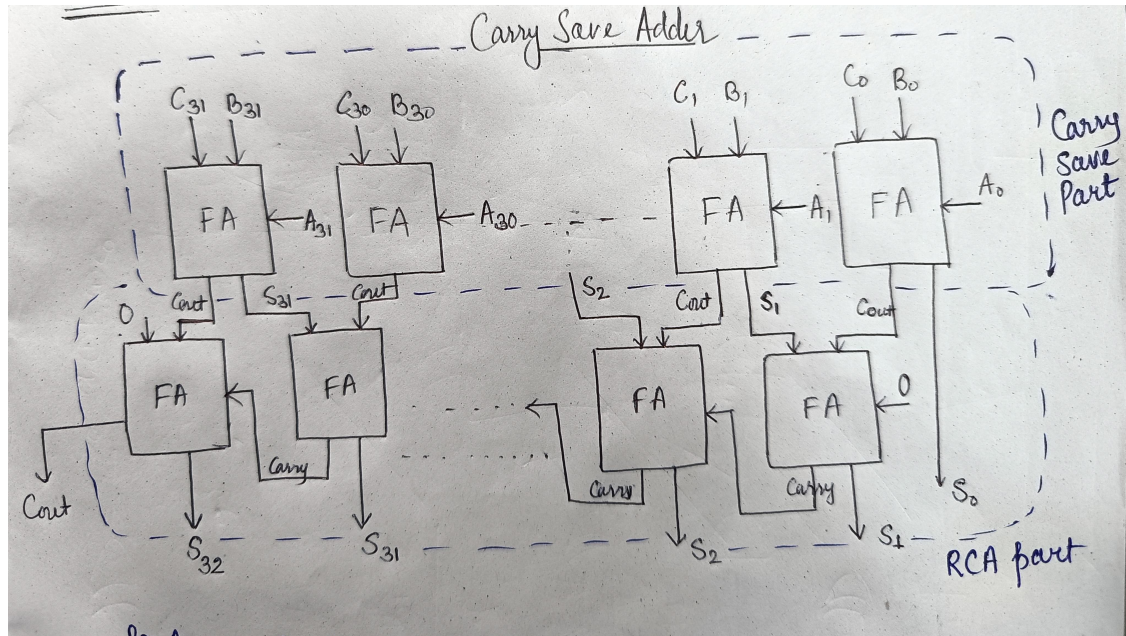 Carry Save Adder
C31 B31 C30 B30 C1 B1 C0 B0
Carry
Save
Part
FA A31 FA A30 FA A1 FA A0
Cout S31 Cout S2 Cout S1 Cout
0 FA FA FA FA 0
Carry Carry Carry
Cout S32 S31 S2 S1 S0
RCA part